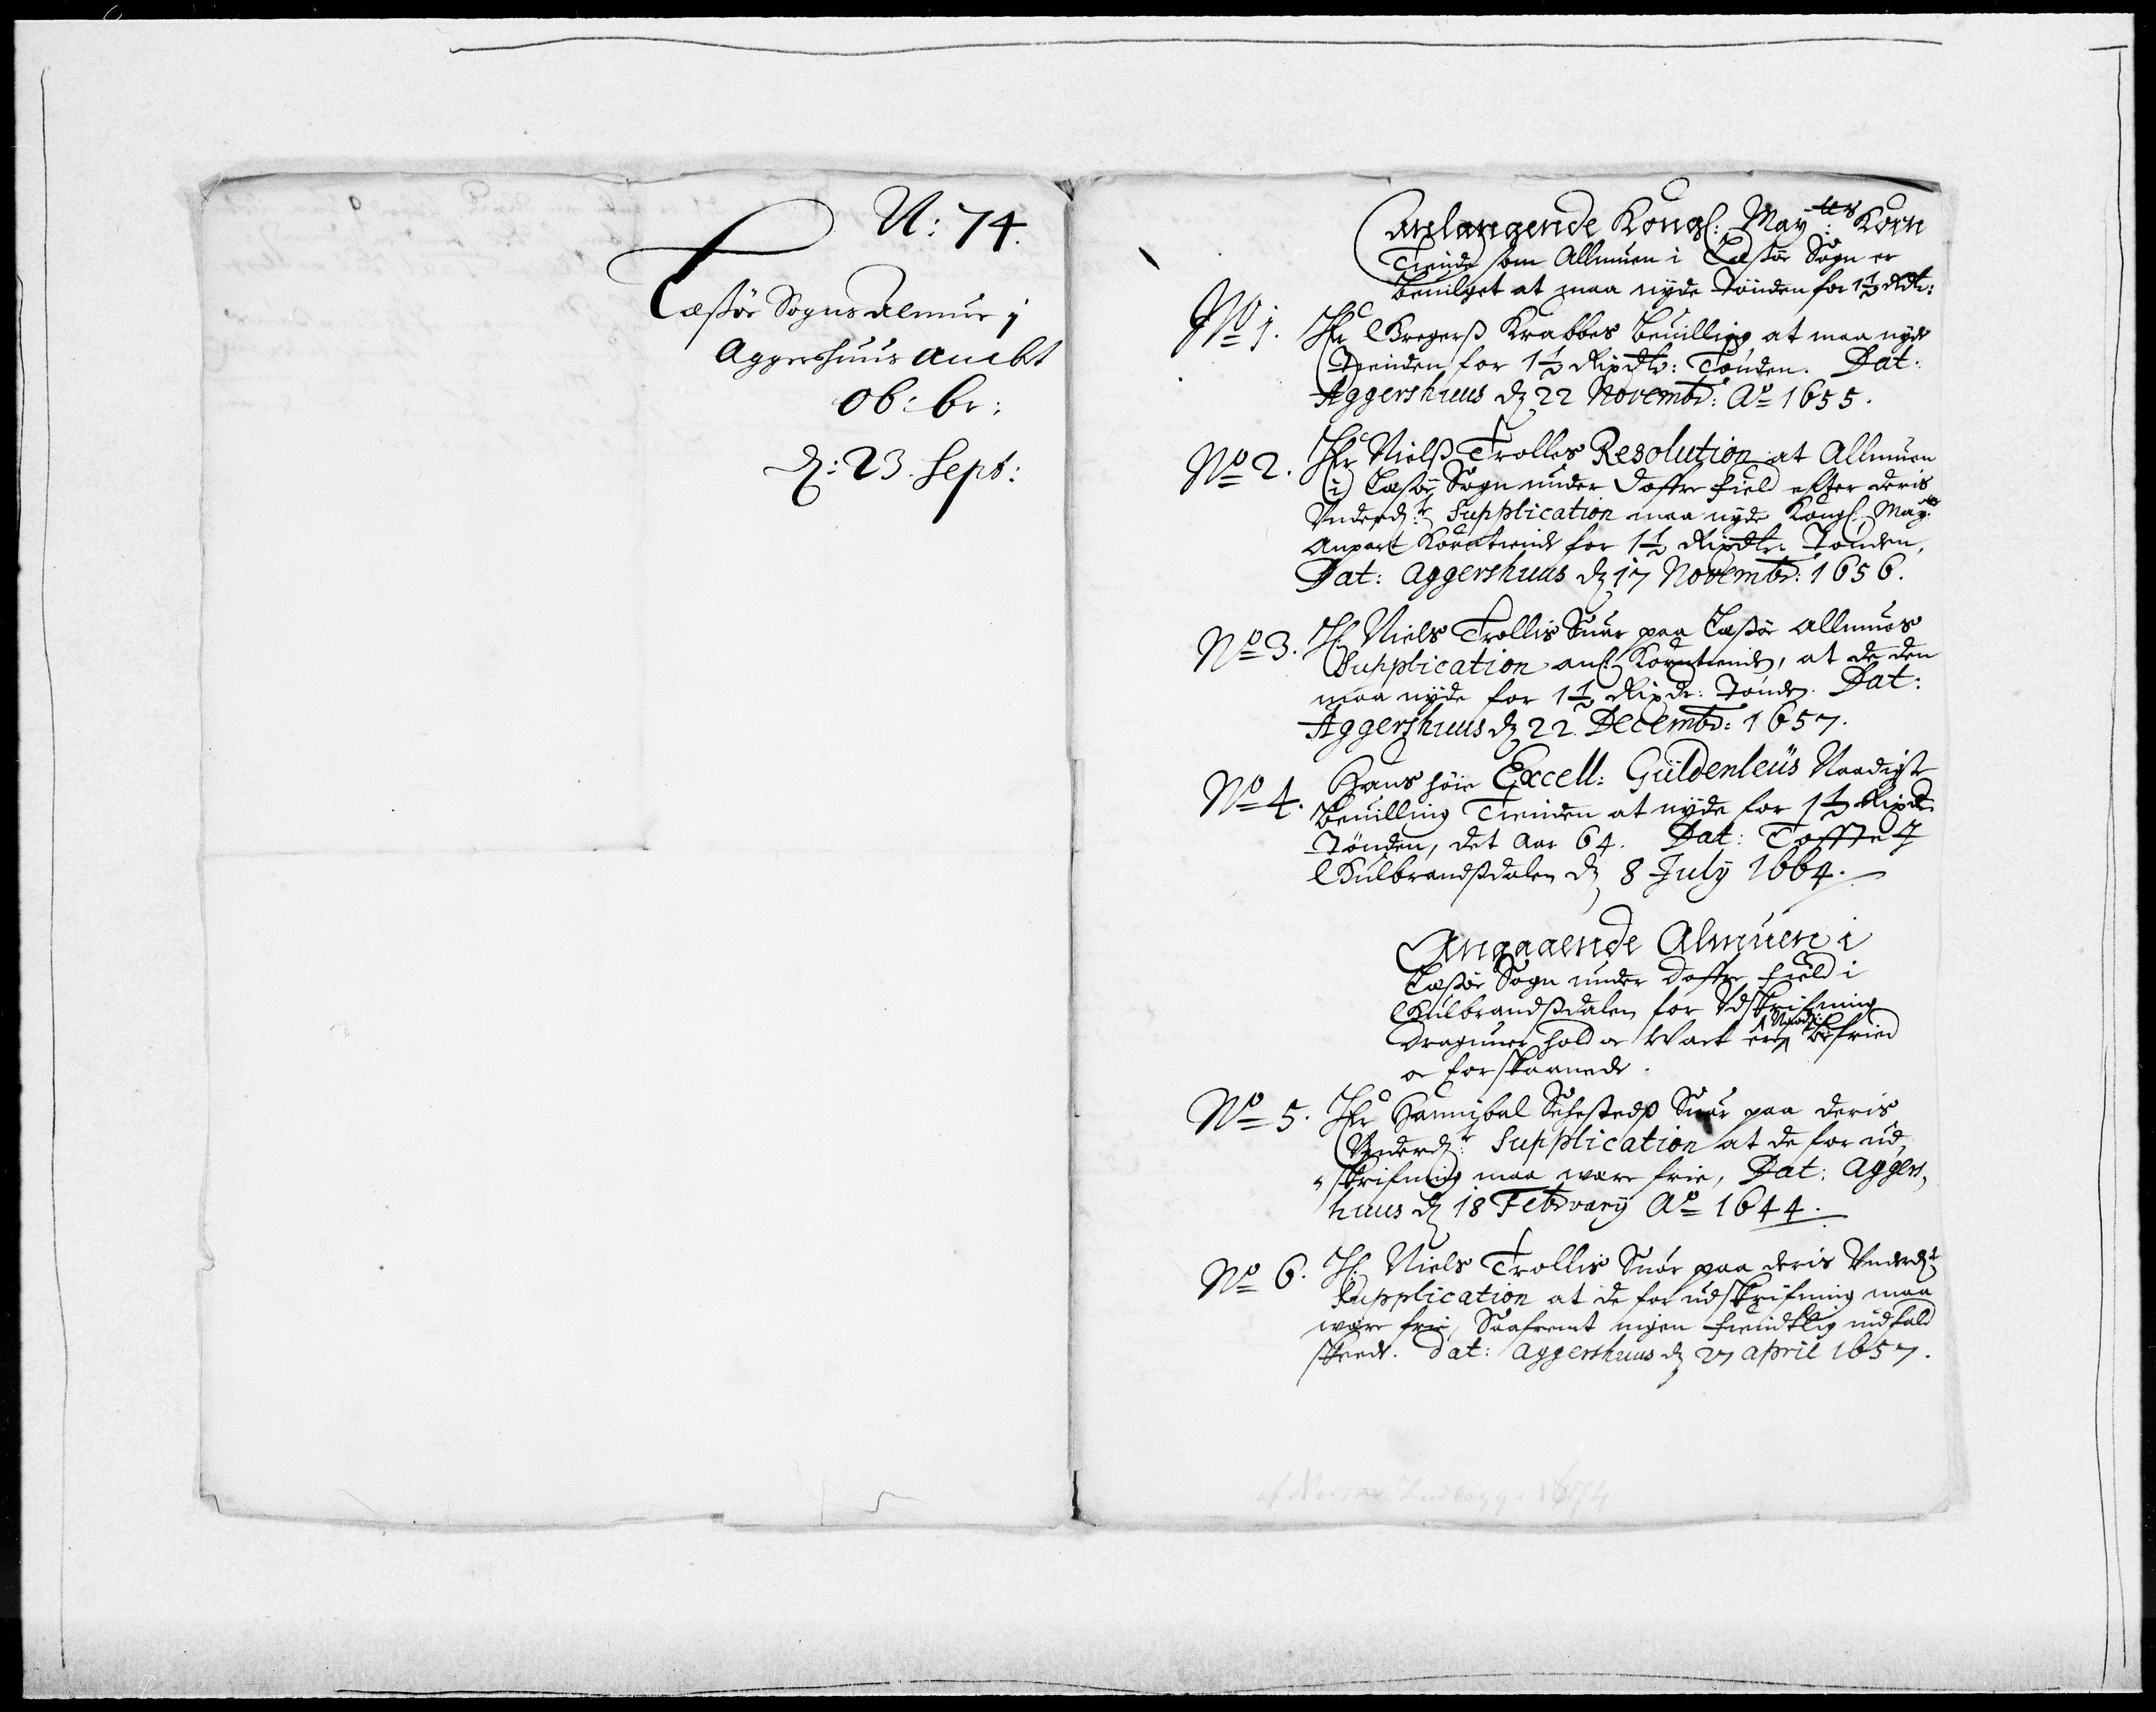 N: 74.
Læssøe Sogns Almue j
Aggershuus Ambt
ob: br:
d: 23. Sept:
Anlangende Kongl: May:tts Korn
Tiende som Allmuen i Læssøe Sogn er
beuilget at maa nyde Tønden for 1½ Rdr:
No 1. Hr Gregerss Krabbes beuilling at maa nyde
Thienden for 1½ Rixdlr: Tønden. Dat:
Aggershuus dz 22 Novembr: Ao 1655.
No 2. Hr Nielss Trolles Resolution at Allmuen
i Læssøe Sogn under Doffre Field efter deris
Underd:r Supplication maa nyde Kongl. May:ts
Anpart Korntiende for 1½ Rixdlr: Tønden,
Dat: Aggershuus dz 17 Novembr: 1656.
No 3. Hr Niels Trollis Suar paa Læssøe Allmues
Supplication anl: Korntiende, at de den
maa nyde for 1½ Rixdr: Tønden. Dat:
Aggershuus dz 22. Decembr: 1657.
No 4. Hans høie Excell: Güldenleüs Naadigste
beuilling Tienden at nyde for 1½ Rixdr
Tønden, det Aar 64. Dat: Toffte J
Gulbrandssdalen dz 8 July 1664.
Angaaende Almuen i
Læssøe Sogn under Doffre Field i
Gulbrandssdalen for Udskrifning
Dragunerhold oc Wart ere Naadig: befried
oc forskaanede.
No 5. Hr Hannibal Sehestedss Suar paa deris
Underd:r Supplication at de for ud,
skrifning maa være frie, Dat: Aggers,
huus dz 18 Februarÿ Ao 1644.
No 6. Hr Niels Trollis Suar paa deris Underd:r
Supplication at de for udskrifning maa
være frie, Saafremt ingen fiendtlig indfald
skeede. Dat: Aggershuus dz 27 April 1657.
af Norske Indlæg 1674